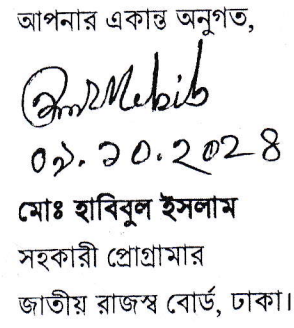 আপনার একান্ত অনুগত,
০৯.১০.২০২৪
মোঃ হাবিবুল ইসলাম
সহকারী প্রোগ্রামার
জাতীয় রাজস্ব বোর্ড, ঢাকা।